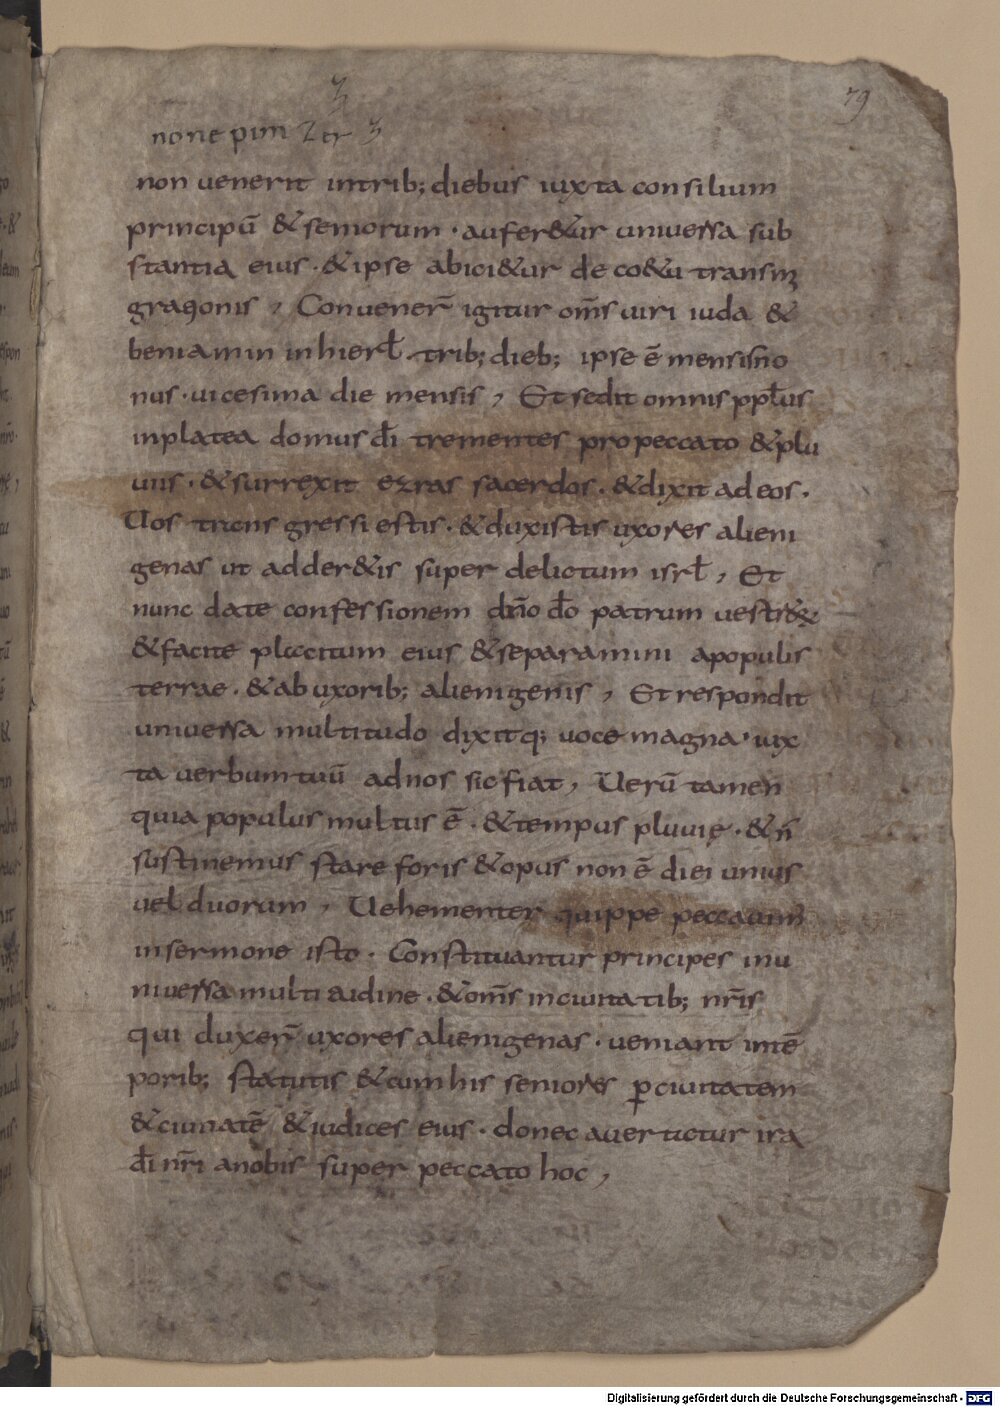 79
none pim
non uenerit intrib; diebus iuxta consilium
principū & seniorum · aufer&ur uniuersa sub
stantia eius · & ipse abici&ur de co&u transm
Conuener̄ igitur om̄s uiri iuda &
beniamin in hierƚ · trib; dieb; ipse ē mensis no
nus · uicesima die mensis , Et sedit omnis ppƚus
inplatea domus dī trementes pro peccato & plu
uiis · & surrexit ezras sacerdos · & dixit ad eos ·
Uos transgressi estis · & duxistis uxores alieni
genas ut adder&is super delictum isrƚ , Et
nunc date confessionem dn̄o dō patrum
& facite placitum eius & separamini apopulis
terrae · & ab uxorib; alienigenis , Et respondit
uniuersa multitudo dixitq; uoce magna · iux
ta uerbum tuū ad nos sic fiat , Uerū tamen
quia populus multus ē · & tempus pluuię · & n̄
sustinemus stare foris & opus non ē diei unius
uel duorum , Uehementer quippe peccauim̄
in sermone isto · Constituantur principes inu
niuersa multitudine · & om̄s in ciuitatib; nr̄is
qui duxer̄ uxores alienigenas · ueniant in tē
porib; statutis & cum his seniores ꝑ ciuitatem
& ciuitatē & iudices eius · donec auertatur ira
dī nr̄i a nobis super peccato hoc ,
Digitalisierung gefördert durch die Deutsche Forschungsgemeinschaft - DFG